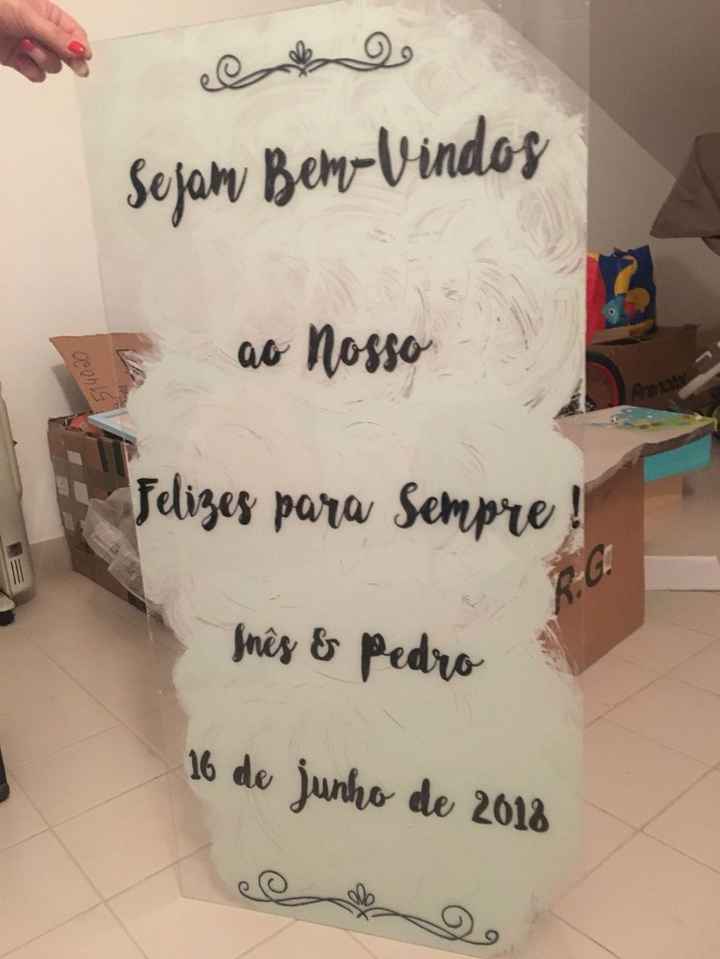 Sejam Bem-Vindos
ao Nosso
Felizes para Sempre !
Inês & Pedro
16 de junho de 2018
R.G.